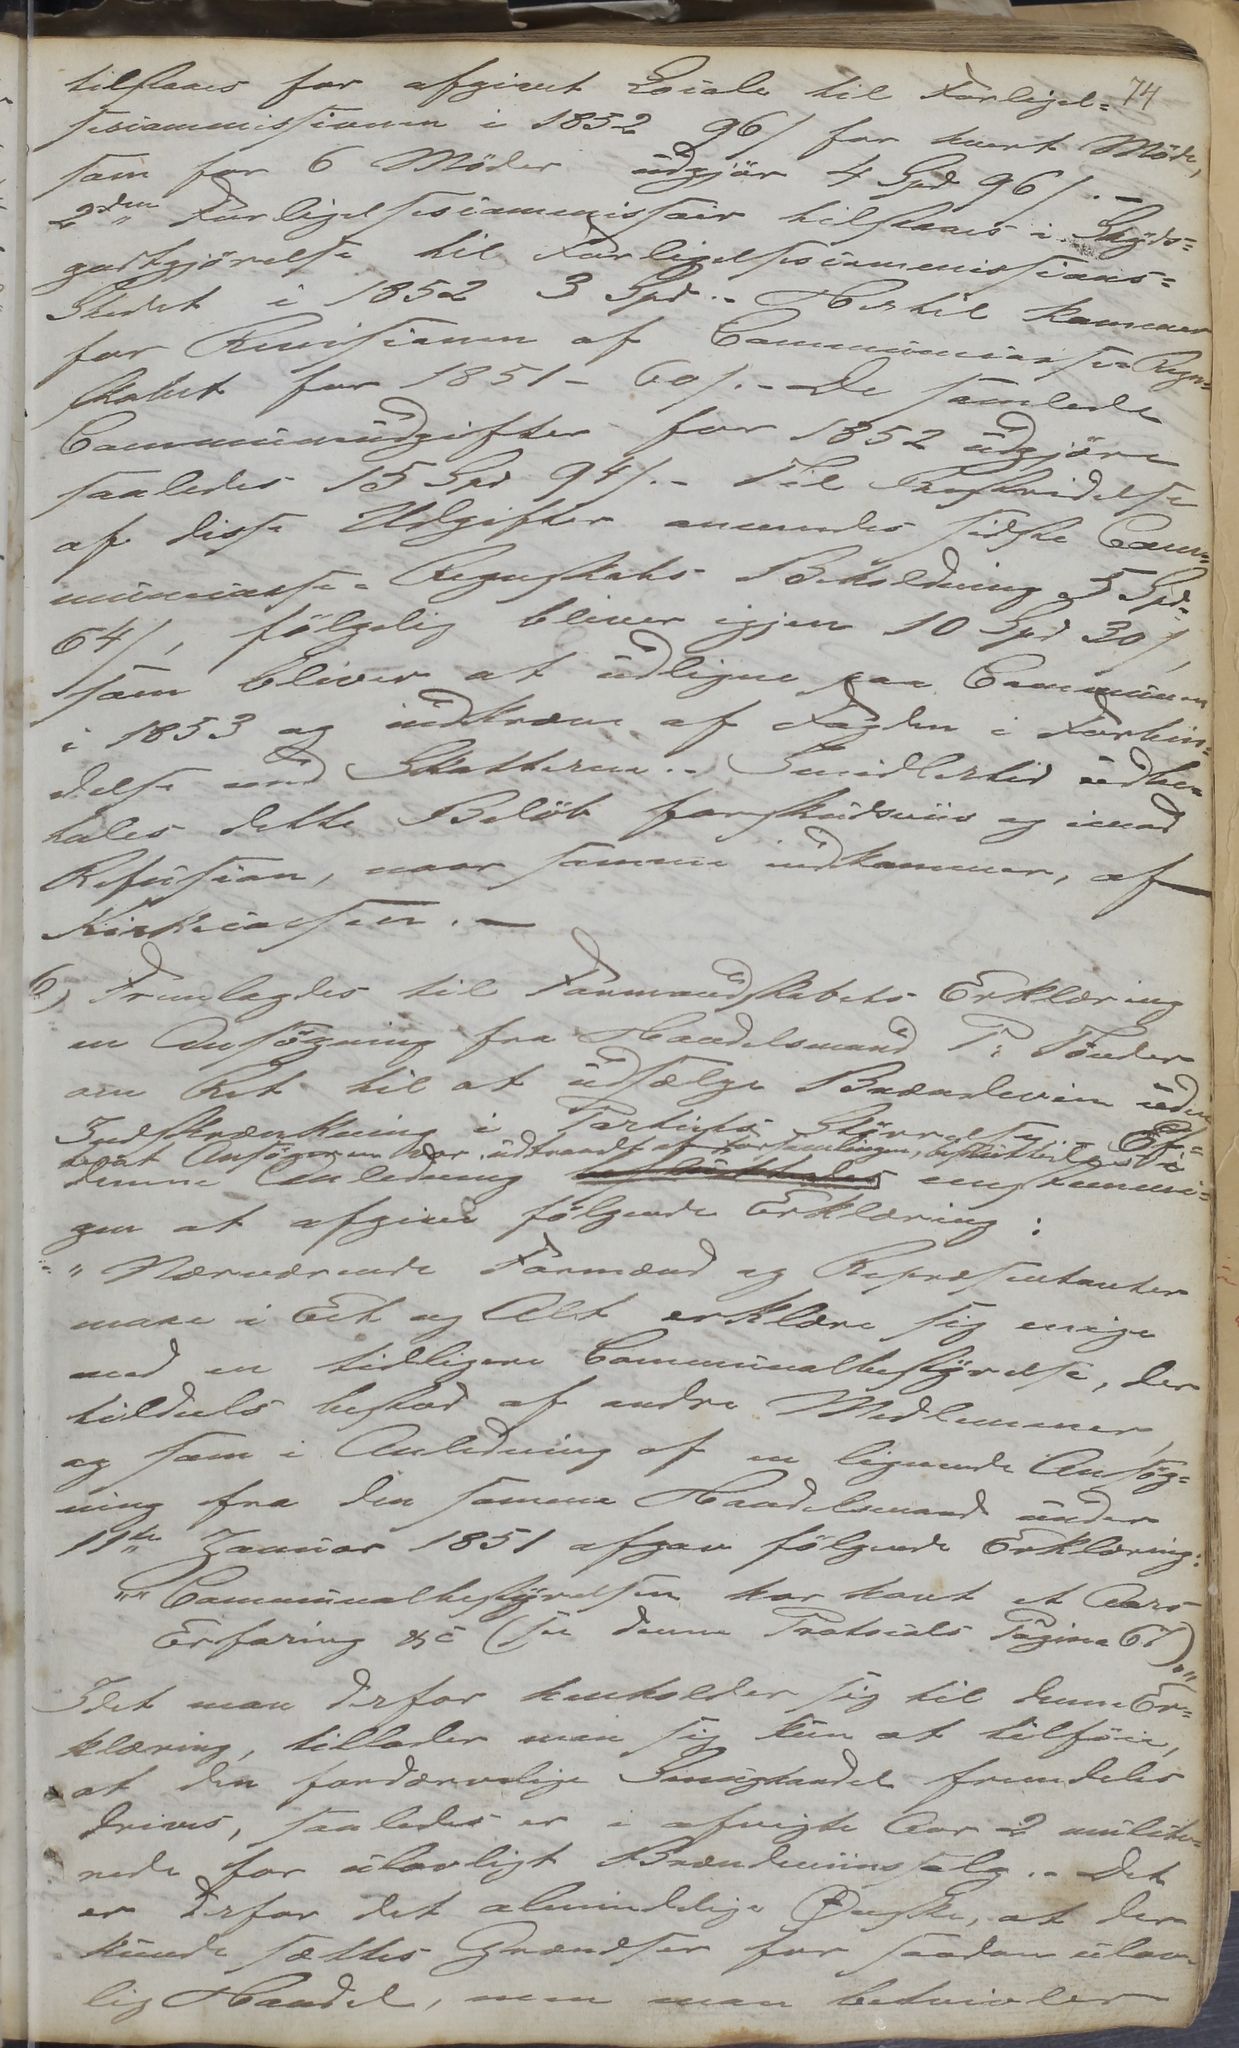 74
tilstaaes for afgivet Locale til Forligel-
sescommissionen i 1852 96 s for hvert Møde,
som for 6 Møder udgjör 4 Spd 96 s. -
2den Forligelsescommissair tilstaaes i Skyds-
godtgjörelse til Forligelsescommissions-
Stedet i 1852 3 Spd .- Hertil kommer
for Revisionen af Communecasse-Regn-
skabet for 1851 - 60 s. - De samlede
Communeudgifter for 1852 udgjöre
saaledes 15 Spd 94 s. - Til Bestridelse
af disse Udgifter anvendes sidste Com-
munecasse-Regnskabs Beholdning 5 Spd-
64 s, fölgelig bliver igjen 10 Spd 30 s,
som bliver at udligne paa Communen
i 1853 og indkræve af Fogden i Forbin-
delse med Skatterne.. Imidlertid udbe-
tales dette Belöb forskudsviis og imod
Refusion, naar samme indkommer, af
Kirkecassen. -
6) Fremlagdes til Formandskabets Erklæring
en Ansögning fra Handelsmand P: Tönder
om Ret til at udsælge Brændeviin uden
Indskrænkning i Partiets Störrelse. Ef-
terat Ansögeren var udtraadt af Forsamlingen, besluttedes i
denne Anledning besluttedes eenstemmi-
gen at afgive fölgende Erklæring:
" Nærværende Formænd og Repræsentanter
maae i Eet og Alt erklære sig enige
med en tidligere Communalbestyrelse, der
tildeels bestod af andre Medlemmer,
og som i Anledning af en lignende Ansög-
ning fra den samme Handelsmand under
11te Januar 1851 afgav fölgende Erklæring:
"" Communalbestyrelsen har havt et Aars
Erfaring &c (see denne Protocols Pagina 67)""
Idet man derfor henholder sig til denne Er-
klæring, tillader man sig kun at tilföie,
at den fordærvelige Smughandel fremdeles
drives, saaledes er i afvigte Aar 2 mulcte-
rede for ulovligt Brændeviinssalg. - Det
er derfor det almindelige Önske, at der
kunde sættes Grændser for saadan ulov-
lig Handel, men man betvivler